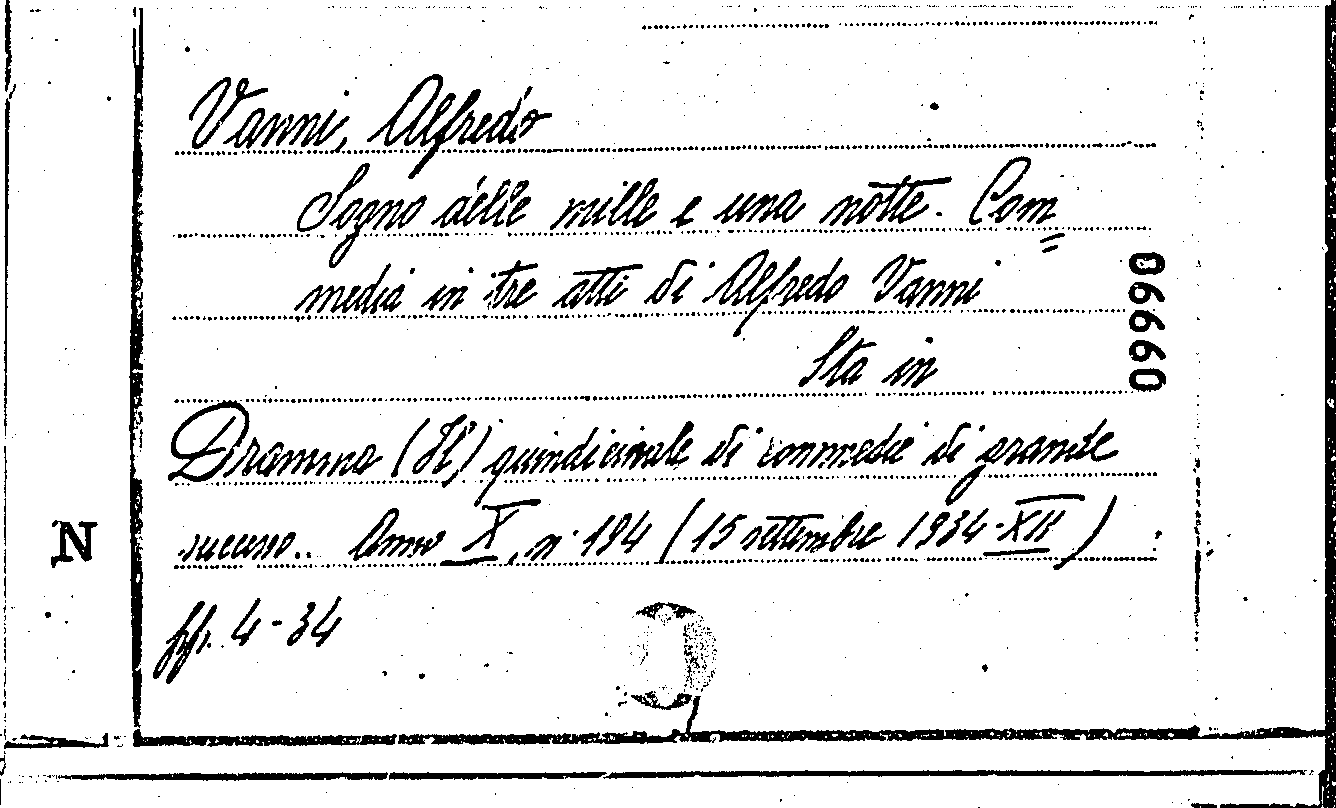 Vanni, Alfredo
Sogno delle mille e una notte. Com=
media in tre atti di Alfredo Vanni
Sta in
Dramma (Il) quindicinale di commedie di grande
successo.. Anno X, n. 194 (15 settembre 1934-XII)
pp. 4-34
N
06660